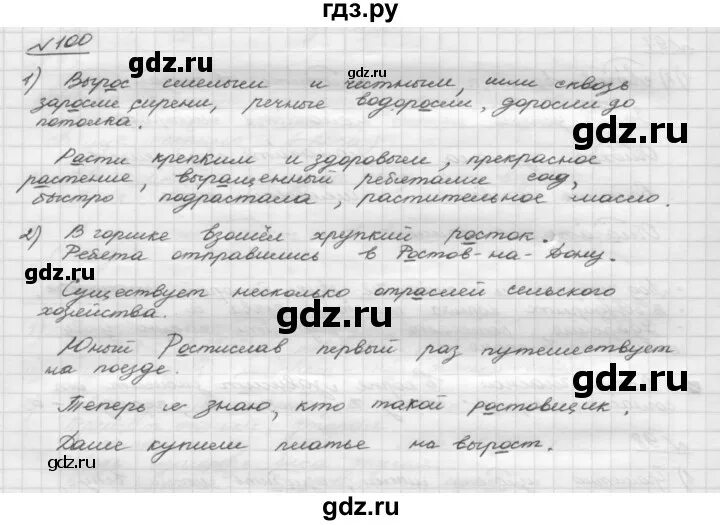 гдз.ру
№100
gdz.ru
gdz.ru
1) Вырос смелым и честным, шли сквозь
заросли сирени, речные водоросли, доросли до
потолка.
gdz.ru
Расти крепким и здоровым, прекрасное
растение, выращенный ребятами сад,
быстро подрастала, растительное масло.
2) В горшке взошёл хрупкий росток.
Ребята отправились в Ростов-на-Дону.
gdz.ru
Существует несколько отраслей сельского
хозяйства.
gdz.ru
Юный Ростислав первый раз путешествует
на поезде.
gdz.ru
Теперь я знаю, кто такой ростовщик.
Даше купили платье на вырост.
gdz.ru
gdz.ru
gdz.ru